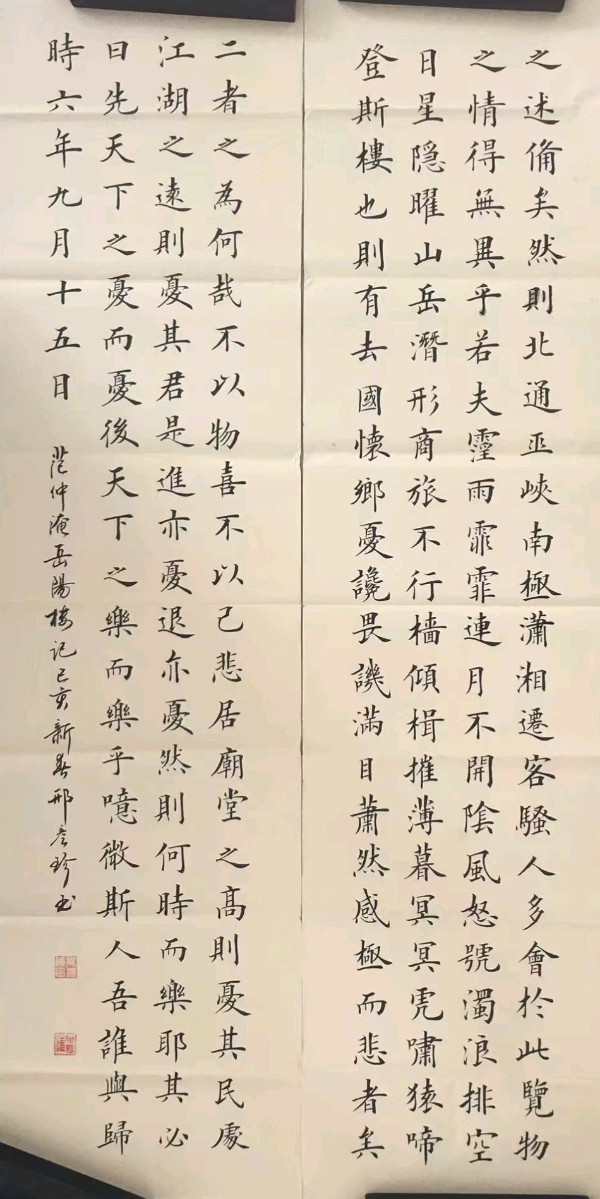 之述俻矣然則北通巫峽南極瀟湘遷客騷人多會於此覽物
之情得無異乎若夫霪雨霏霏連月不開陰風怒號濁浪排空
日星隠曜山岳潛形商旅不行檣傾楫摧薄暮冥冥虎嘯猿啼
登斯樓也則有去國懷鄉憂讒畏譏滿目蕭然感極而悲者矣
二者之為何哉不以物喜不以己悲居廟堂之高則憂其民處
江湖之遠則憂其君是進亦憂退亦憂然則何時而樂耶其必
曰先天下之憂而憂後天下之樂而樂乎噫微斯人吾誰與歸
時六年九月十五日
范仲淹岳陽樓记己亥新春邢彦珍书